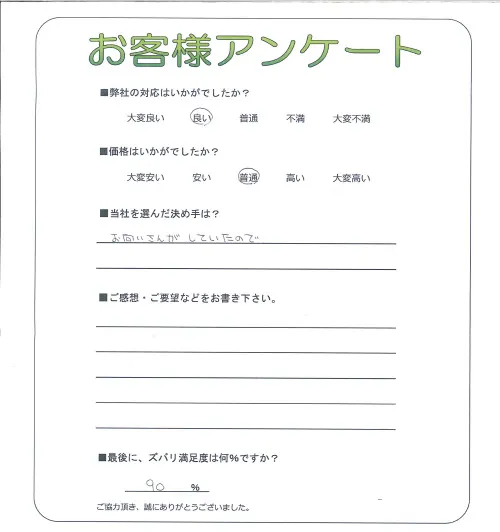 お客様アンケート
■弊社の対応はいかがでしたか？
大変良い 良い 普通 不満 大変不満
■価格はいかがでしたか？
大変安い 安い 普通 高い 大変高い
■当社を選んだ決め手は？
お向いさんがしていたので
■ご感想・ご要望などをお書き下さい。
■最後に、ズバリ満足度は何%ですか？
90 %
ご協力頂き、誠にありがとうございました。